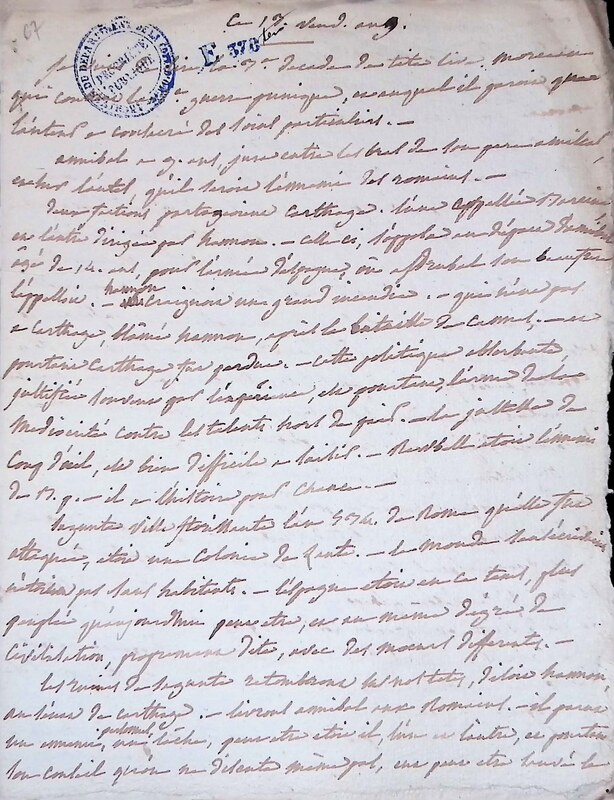 67
ce 17 vend. an 9.
PROPRIÉTÉ PUBLIQUE
F 370 ter
la 3e decade de tite live. morceau
qui guerre punique, et auquel il paroit que
l'auteur a consacré des soins particuliers. —
annibal a 9. ans, jura entre les bras de son pere amilcar,
qu'il seroit l'ennemi des romains. —
deux factions partageoient carthage. l'une appellée Barcine
et l'autre dirigée par hannon. — celle ci, s'opposa au départ d'annibal
agé de 14. ans, pour l'armée d'espagne, où asdrubal son beaufrere
l'appelloit. — hannon craignoit un grand incendie. — qui n'eut pas
a carthage, blâmé hannon, après la bataille de cannes, — et
pourtant carthage fut perdue. — cette politique
justifiée souvent par l'expérience, est pourtant, l'arme de la
mediocrité contre les talents hors de pair. — la justesse de
coup d'œil, est bien difficile a saisir. — étoit l'ennemi
de — il a l'histoire pour chance. —
Sagunte ville florissante l'an 534. de Rome qu'elle fut
attaquée, étoit une colonie de Zante. — le monde
n'étoit pas sans habitants. — l'espagne étoit en ce tems, plus
peuplée qu'aujourdhui peut etre, et au même dégré de
civilisation, proprement dite, avec des moeurs differents. —
les ruines de sagunte retomberont sur nos tetes, disoit hannon
au sénat de carthage. — livrons annibal aux Romains. — il parut
un ennemi, un lâche, peut etre étoit il, l'un et l'autre, et pourtant
son conseil qu'on ne discuta même pas, eut peut etre sauvé la